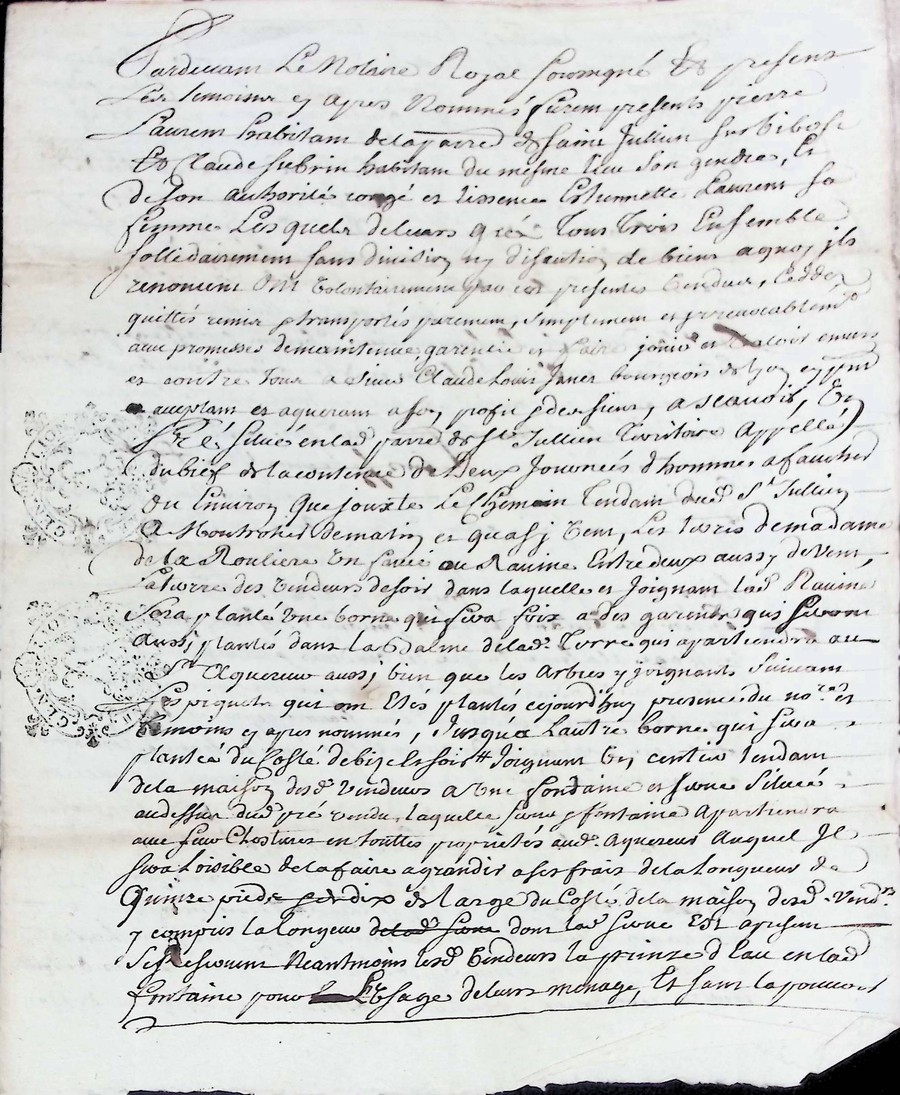 Pardevant Le Notaire Royal soussigné Et present
Les temoins cy apres Nommés furent presents pierre
Laurent habitant de la parre de saint Jullien sur bibost
Et Claude subrin habitant du mesme lieu son gendre, Et
de son authorité congé et Licence Estiennette Laurent sa
femme Lesquels de leurs gré Tous Trois Ensemble
sollidairement sans division ny discution de biens a quoy ils
renoncent ont volontairement par ces presentes vendus, Ceddés,
quittés remis & transportés purement, simplement et irrevocablemt
aux promesses de maintenue garentie et faire jouir et valoir envers
et contre tous a sieur Claude Louis Janet bourgeois de Lyon cy pnt
acceptant et aquerant a soy, profit & des siens, a scavoir, Un
Pré situé en lad parre de St Jullien Territoire Appellé
du bief de la contenue de Deux Journées d'hommes a faucher
ou Environ que jouxte Le Chemin Tendant dud St Jullien
A Montrotier de matin et quasj vent, Les terres de madame
de la Rouliere Un fossé ou Ravine Entre deux aussy de vent,
La terre des vendeurs de soir dans laquelle et Joignant lad Ravine
sera planté une borne qui sera foix a des garents qui seront
aussj plantés dans la balme de lad. Terre qui apartiendra au
Sr Aquereur aussj bien que les Arbres y joignants suivant
Les piquets qui ont Etés plantés cejourd'huy presence du nore et
temoins cy apres nommés, Jusqu'a L'autre borne qui sera
plantée du Costé de bize Et soir Joignant Un sentier Tendant
de la maison desd vendeurs a Une fontaine et serve Situeé
au dessus dud pré vendu, laquelle serve & fontaine Apartiendra
avec ses Clostures en touttes proprietés aud. Aquereur Auquel Il
sera Loisible de la faire agrandir a ses frais de la Longueur de
Quinze pieds sur dix de large du Costé de la maison desd. vendrs
y compris la Longueur de lad serve dont lad serve Est a present
Se reservent Neantmoins lesd vendeurs la prinze d'Eau en lad
fontaine pour L'Usage de leurs menage, Et sans la pouvoir